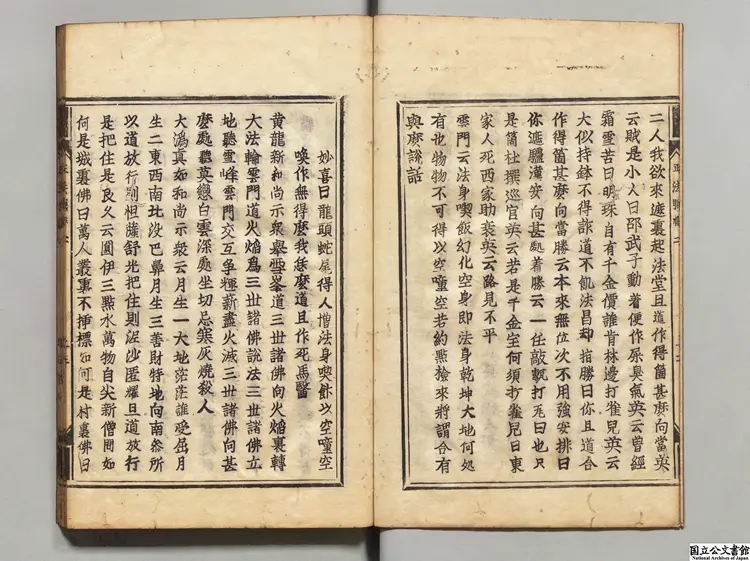 二人我欲來遮裏起法堂且道作得箇甚麽向當英
云賊是小人曰邵武子動着便作屎臭氣英云曾經
霜雪苦曰明珠自有千金價誰肯林邊打雀兒英云
大似持鉢不得詐道不飢法昌却指勝曰你且道合
作得箇甚麽向當勝云本來無位次不用強安排曰
你遮驢漢安向甚處着勝云一任敲甎打瓦曰也只
是箇杜撰巡官英云若是千金宝何須打雀兒曰東
家人死西家助哀英云路見不平
雲門云法身喫飯幻化空身即法身乾坤大地何処
有也物物不可得以空噇空若約點檢來將謂合有
與麽說話
妙喜曰龍頭蛇尾得人憎法身喫飰以空噇空
喚作無得麽我恁麽道且作死馬醫
黄龍新和尚示衆舉雪峯道三世諸佛向火焰裏轉
大法輪雲門道火焰爲三世諸佛說法三世諸佛立
地聽靈峰雲門交互争輝薪盡火滅三世諸佛向甚
麽處聽莫戀白雲深處坐切忌寒灰燒殺人
大潙真如和尚示衆云月生一大地茫茫誰受屈月
生二東西南北没巴鼻月生三善財特地向南叅所
以道放行則怛薩舒光把住則泥沙匿耀且道放行
是把住是良久云圓伊三點水萬物自尖新僧問如
何是城裏佛曰萬人叢裏不揷標如何是村裏佛曰
国立公文書館
National Archives of Japan